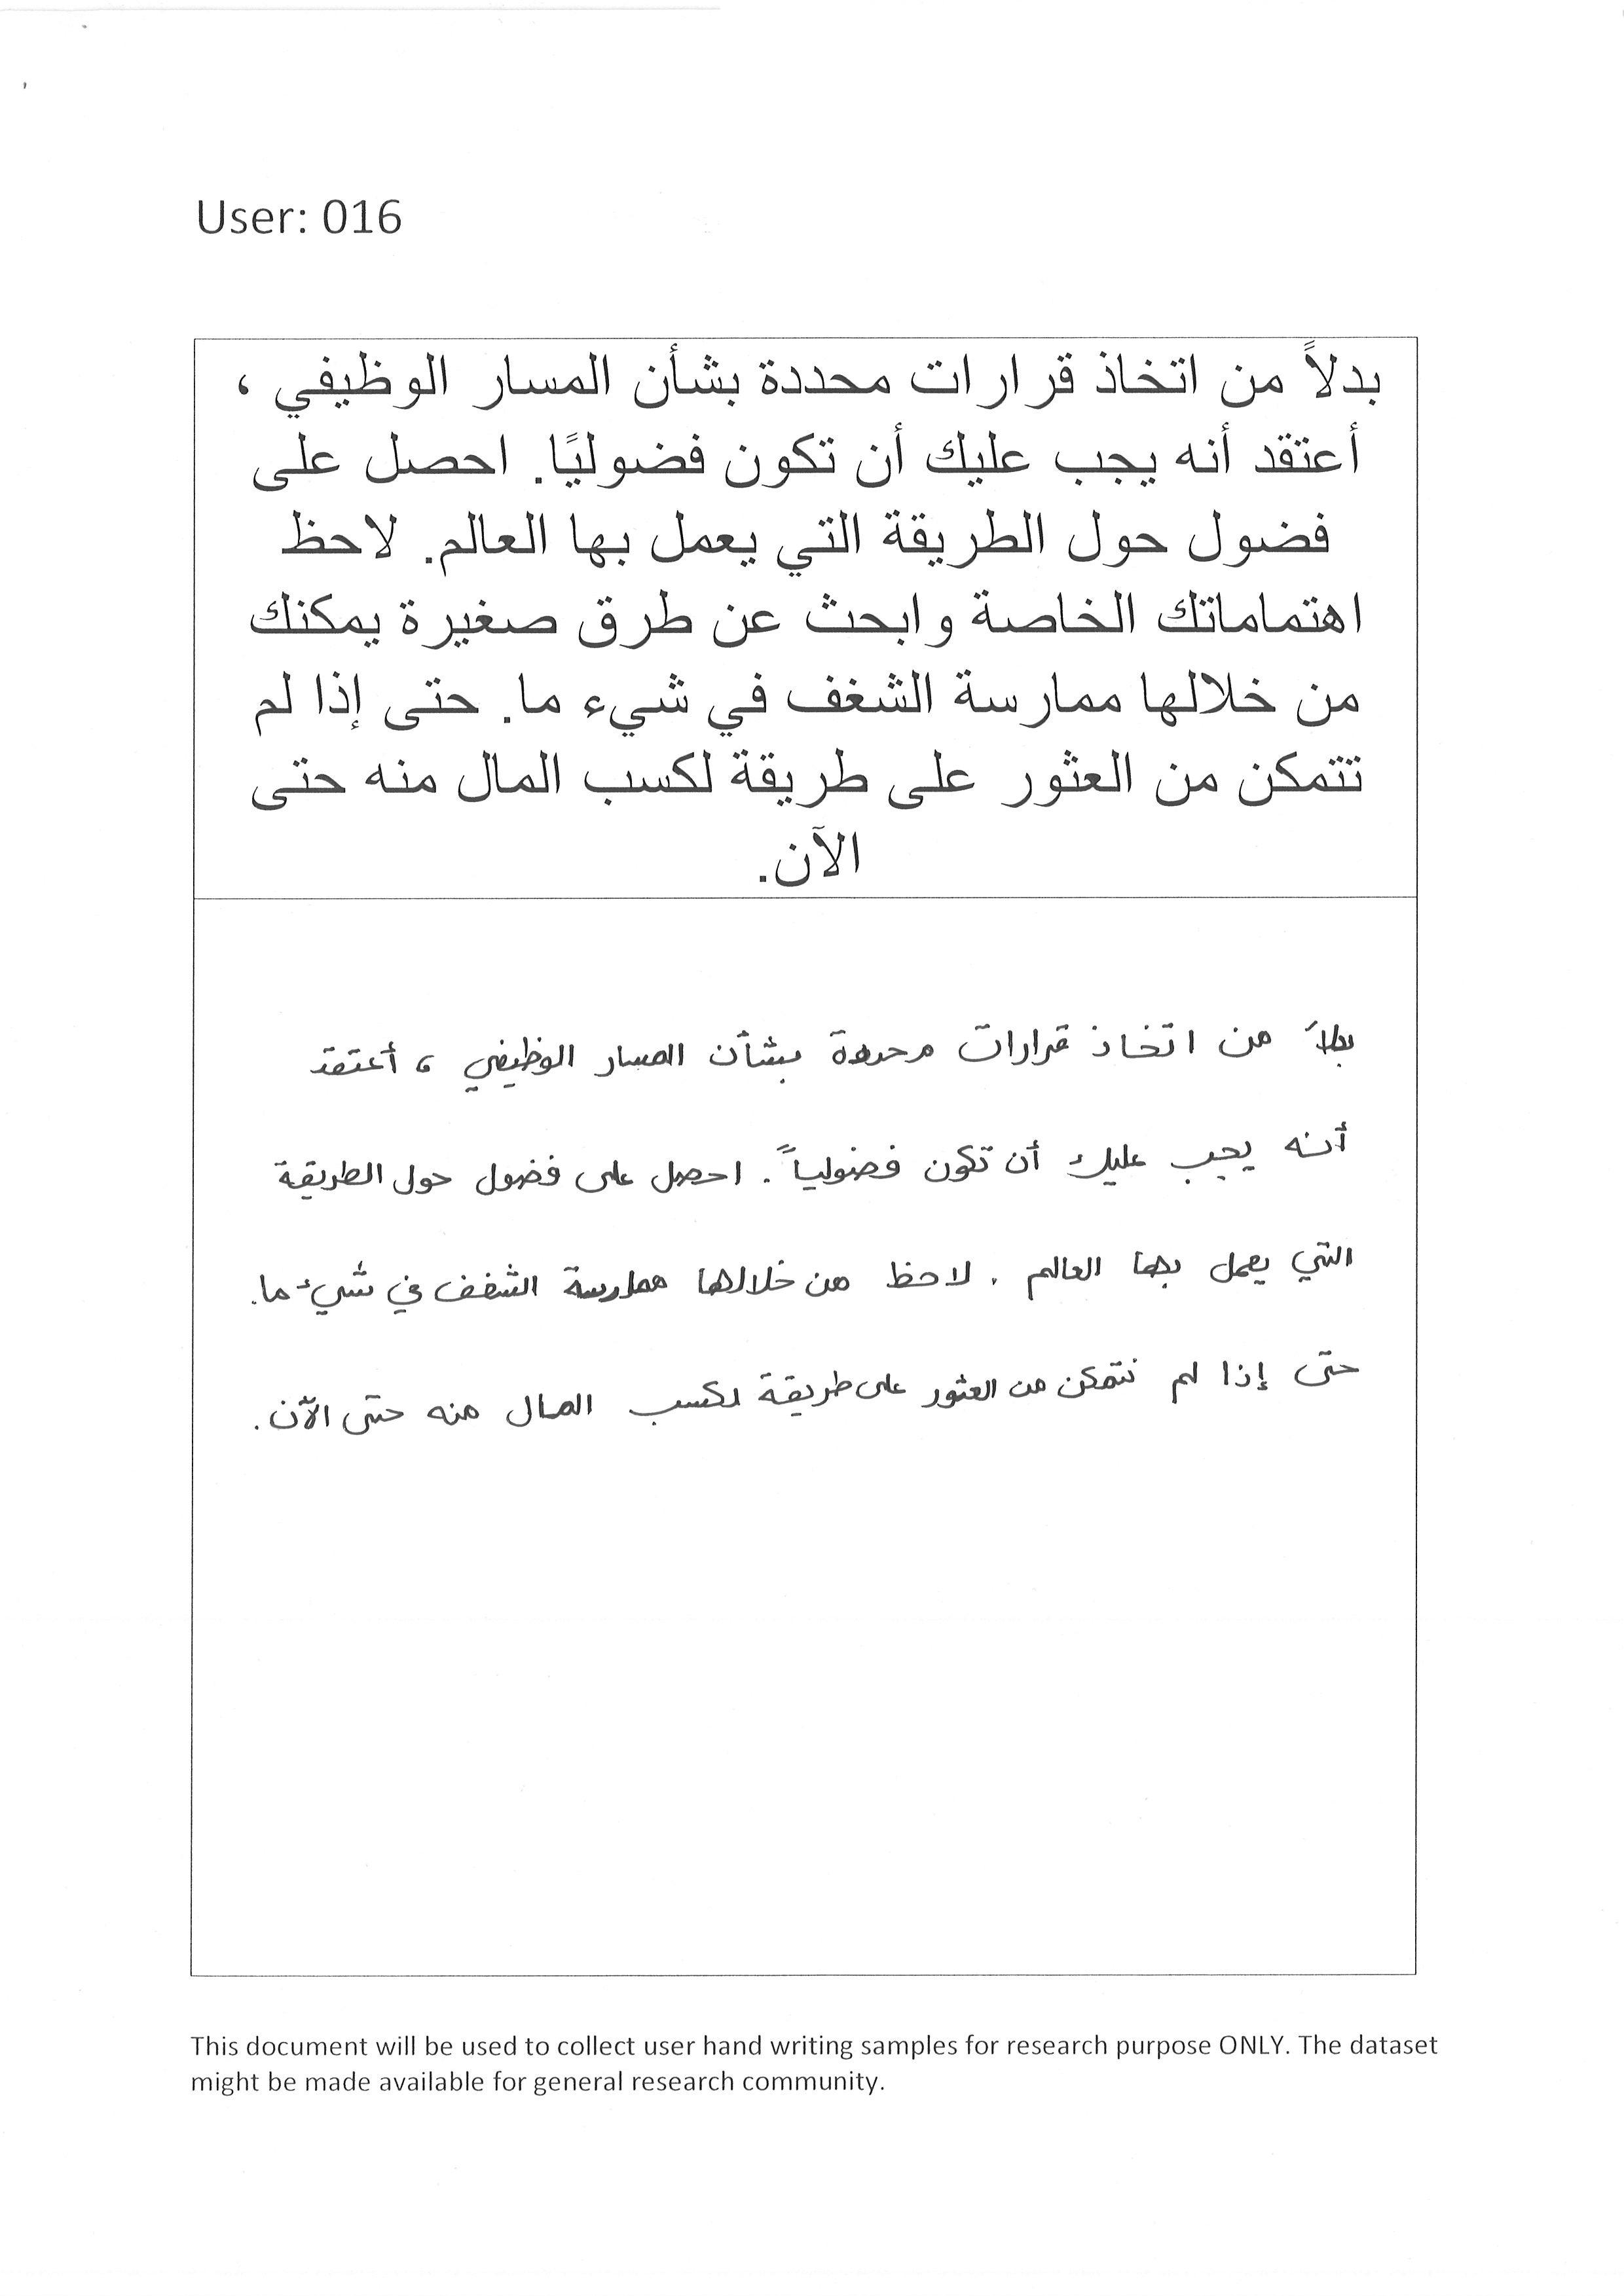 User: 016
بدلاً من اتخاذ قرارات محددة بشأن المسار الوظيفي ،
أعتقد أنه يجب عليك أن تكون فضوليًا. احصل على
فضول حول الطريقة التي يعمل بها العالم. لاحظ
اهتماماتك الخاصة وابحث عن طرق صغيرة يمكنك
من خلالها ممارسة الشغف في شيء ما. حتى إذا لم
تتمكن من العثور على طريقة لكسب المال منه حتى
الآن.
بدلاً من اتخاذ قرارات محددة بشأن المسار الوظيفي ، أعتقد
أنه يجب عليك أن تكون فضولياً. احصل على فضول حول الطريقة
التي يعمل بها العالم. لاحظ من خلالها ممارسة الشغف في شيء ما.
حتى إذا لم تتمكن من العثور على طريقة لكسب المال منه حتى الآن.
This document will be used to collect user hand writing samples for research purpose ONLY. The dataset
might be made available for general research community.